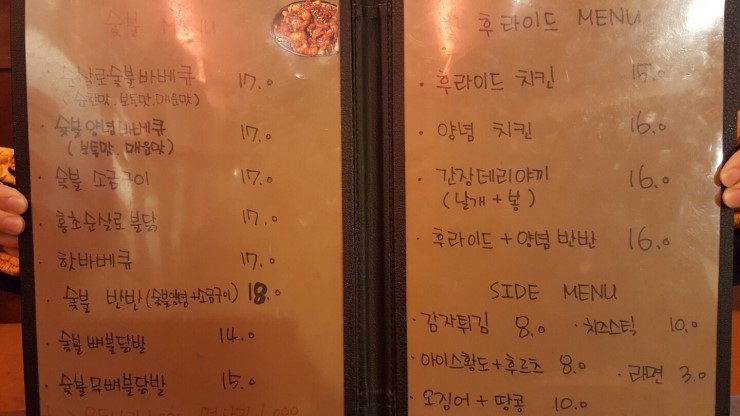 숯불 MENU
순살로숯불바베큐 17.0
(순한맛, 보통맛, 매운맛)
· 숯불양념바베큐 17.0
(보통맛, 매운맛)
· 숯불 소금구이 17.0
· 홍초순살로불닭 17.0
· 핫바베큐 17.0
· 숯불 반반(숯불양념+소금구이) 18.0
· 숯불 뼈불닭발 14.0
· 숯불무뼈불닭발 15.0
후라이드 MENU
· 후라이드 치킨 15.0
· 양념 치킨 16.0
· 간장데리야끼 16.0
(날개+봉)
· 후라이드+양념반반 16.0
SIDE MENU
· 감자튀김 8.0 · 치즈스틱 10.0
· 아이스황도+후르츠 8.0
· 라면 3.0
· 오징어+땅콩 10.0